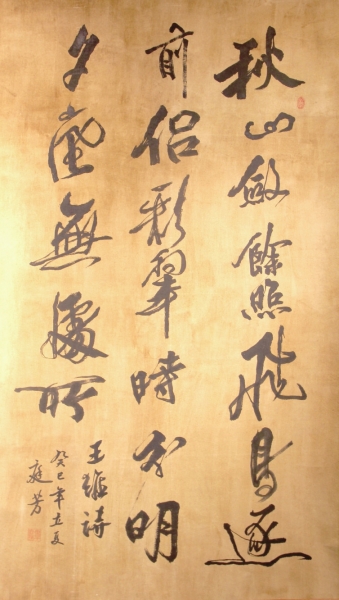 秋山斂餘照飛鳥逐
前侶彩翠時分明
夕嵐無處所
王維詩
癸巳年夏
庭芳